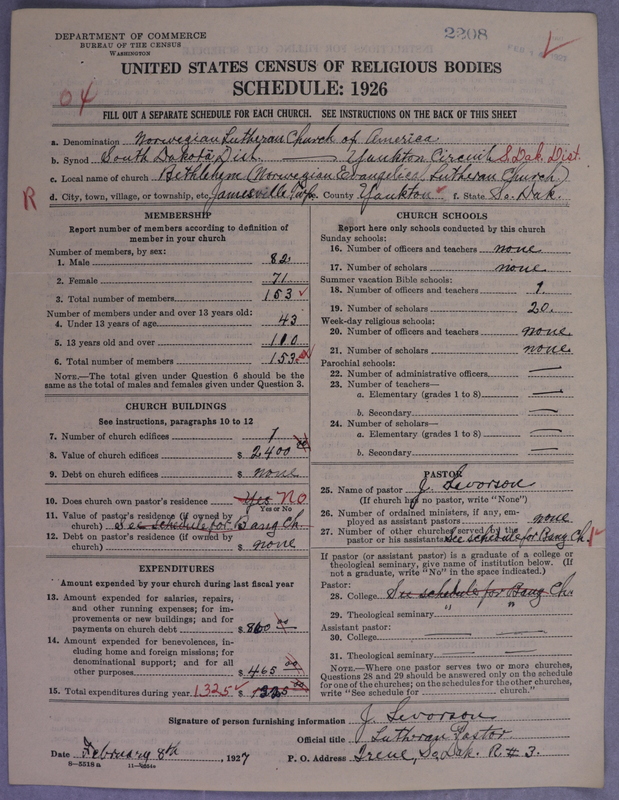 DEPARTMENT OF COMMERCE
BUREAU OF THE CENSUS
WASHINGTON
2208
UNITED STATES CENSUS OF RELIGIOUS BODIES
SCHEDULE: 1926
04
FILL OUT A SEPARATE SCHEDULE FOR EACH CHURCH. SEE INSTRUCTIONS ON THE BACK OF THIS SHEET
a. Denomination Norwegian Lutheran Church of America
b. Synod South Dakota Dist. — Yankton Circuit S. Dak. Dist.
c. Local name of church Bethlehem (Norwegian Evangelical Lutheran Church)
R d. City, town, village, or township, etc. Jamesville County Yankton f. State So. Dak.
MEMBERSHIP
Report number of members according to definition of
member in your church
Number of members, by sex:
1. Male 82
2. Female 71
3. Total number of members 153
Number of members under and over 13 years old:
4. Under 13 years of age 43
5. 13 years old and over 110
6. Total number of members 153
NOTE.—The total given under Question 6 should be the
same as the total of males and females given under Question 3.
CHURCH BUILDINGS
See instructions, paragraphs 10 to 12
7. Number of church edifices 1
8. Value of church edifices $ 2400 00
9. Debt on church edifices $ none
10. Does church own pastor's residence Yes No
Yes or No
11. Value of pastor's residence (if owned by
church) See schedule for $ Bang Ch.
12. Debt on pastor's residence (if owned by
church) $ none
EXPENDITURES
Amount expended by your church during last fiscal year
13. Amount expended for salaries, repairs,
and other running expenses; for im-
provements or new buildings; and for
payments on church debt $ 860 00
14. Amount expended for benevolences, in-
cluding home and foreign missions; for
denominational support; and for all
other purposes $ 465 00
15. Total expenditures during year 1325 $ 1325 00
CHURCH SCHOOLS
Report here only schools conducted by this church
Sunday schools:
16. Number of officers and teachers none
17. Number of scholars none
Summer vacation Bible schools:
18. Number of officers and teachers 1.
19. Number of scholars 20.
Week-day religious schools:
20. Number of officers and teachers none
21. Number of scholars none
Parochial schools:
22. Number of administrative officers —
23. Number of teachers—
a. Elementary (grades 1 to 8) —
b. Secondary —
24. Number of scholars—
a. Elementary (grades 1 to 8) —
b. Secondary —
PASTOR
25. Name of pastor J. Levorson
(If church has no pastor, write "None")
26. Number of ordained ministers, if any, em-
ployed as assistant pastors none
27. Number of other churches served by the
pastor or his assistants See schedule for Bang Ch.
If pastor (or assistant pastor) is a graduate of a college or
theological seminary, give name of institution below. (If
not a graduate, write "No" in the space indicated.)
Pastor:
28. College See schedule for Bang Ch.
29. Theological seminary " "
Assistant pastor:
30. College — —
31. Theological seminary — —
NOTE.—Where one pastor serves two or more churches,
Questions 28 and 29 should be answered only on the schedule
for one of the churches; on the schedules for the other churches,
write "See schedule for ______ church."
Signature of person furnishing information J. Levorson
Official title Lutheran Pastor
Date February 8th, 1927 P. O. Address Irene, So. Dak. R # 3.
8-5518 a